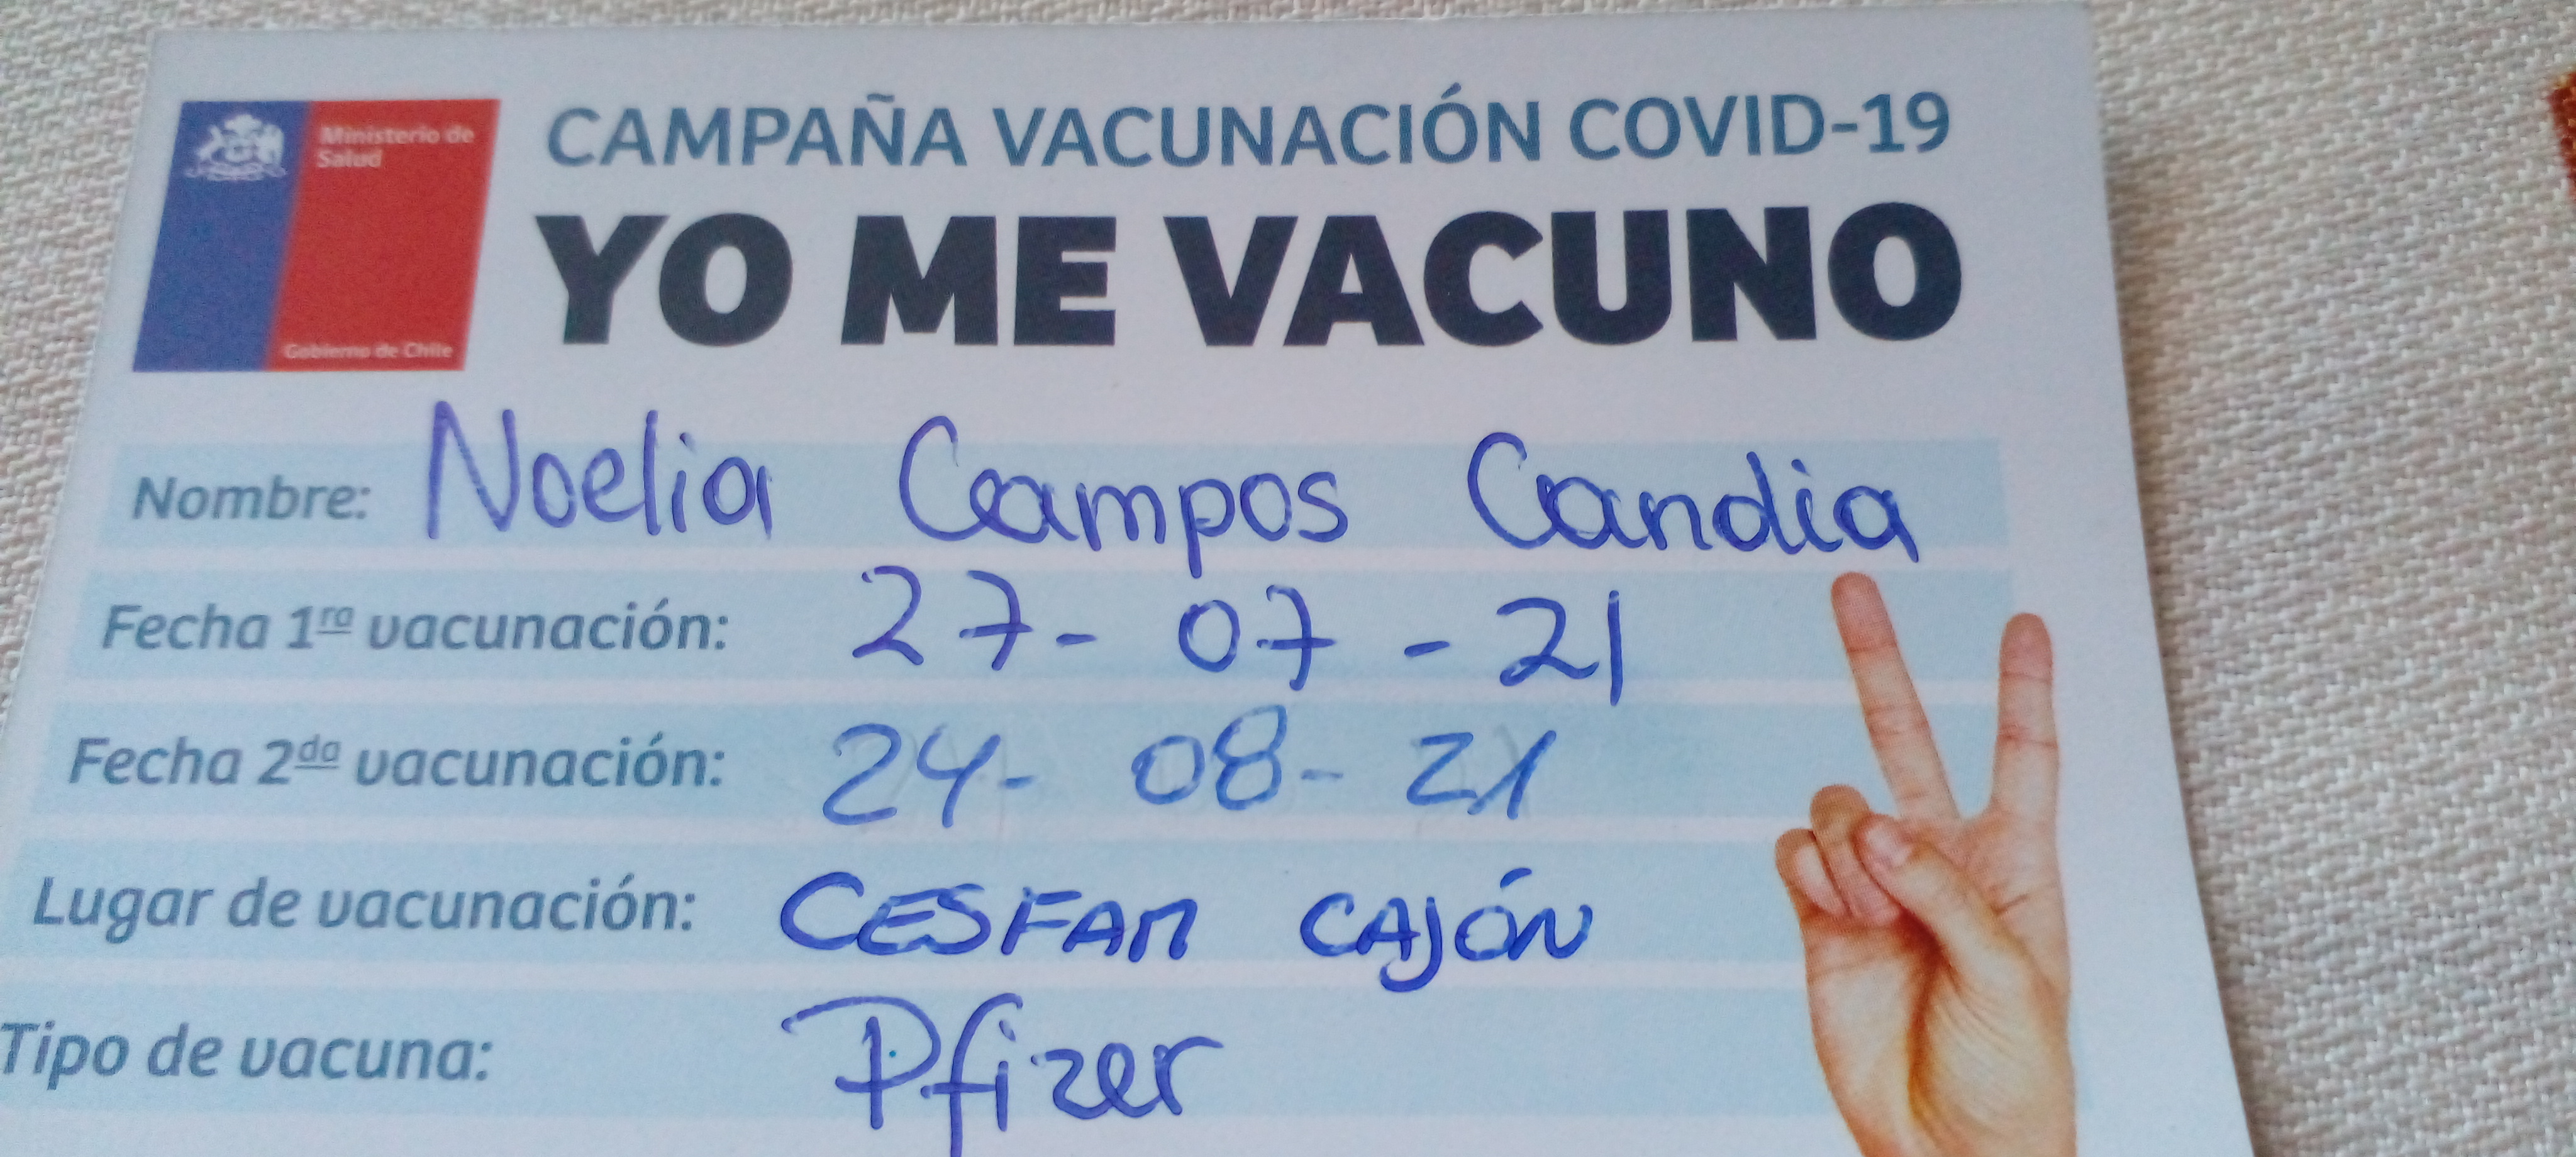 Ministerio de
Salud
Gobierno de Chile
CAMPAÑA VACUNACIÓN COVID-19
YO ME VACUNO
Nombre: Noelia Campos Candia
Fecha 1ra vacunación: 27-07-21
Fecha 2da vacunación: 24-08-21
Lugar de vacunación: CESFAM CAJÓN
Tipo de vacuna: Pfizer